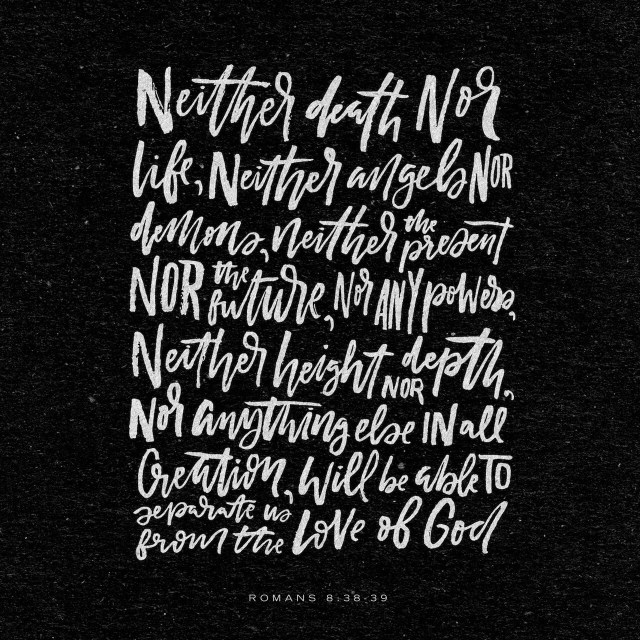 Neither death Nor
life, Neither angels NOR
demons, neither the present
NOR the future, Nor ANY powers,
Neither height NOR depth,
Nor anything else IN all
Creation, Will be able TO
separate us
from the love of God
ROMANS 8.38-39